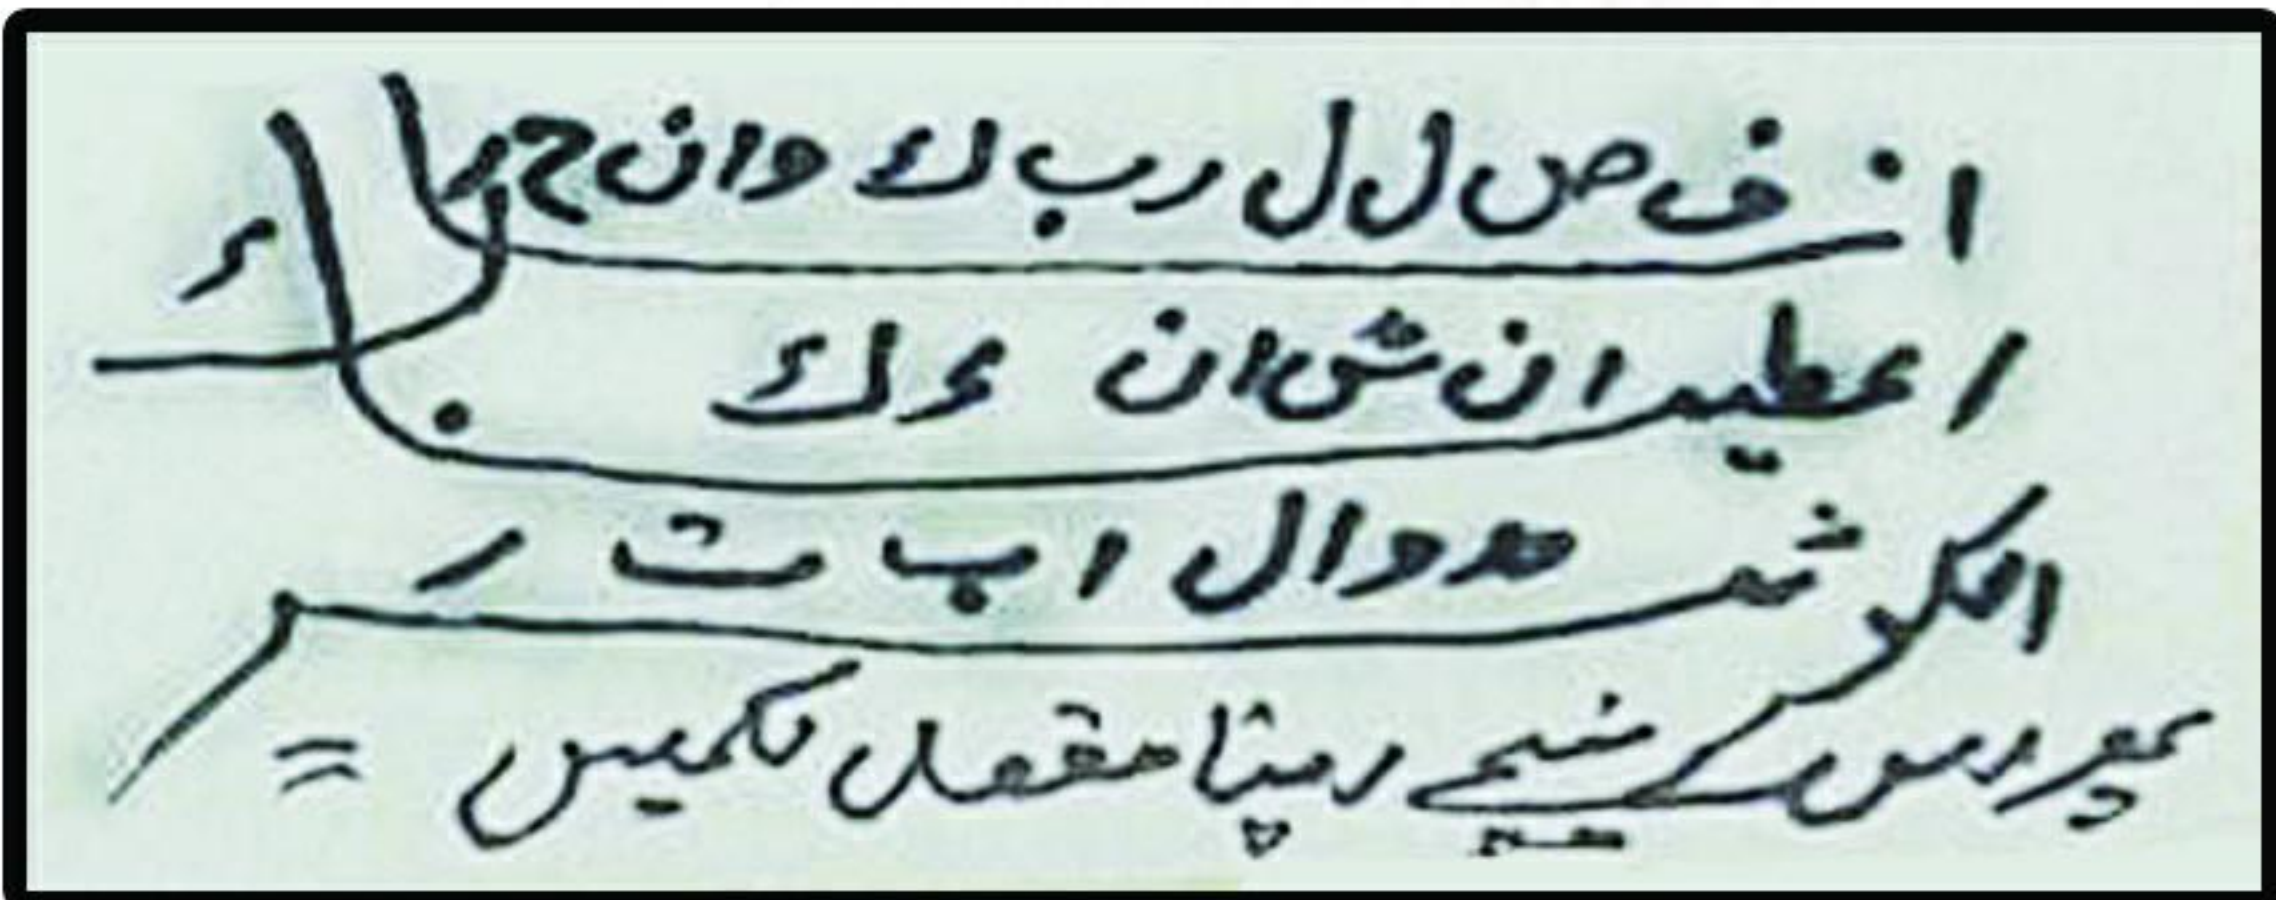 ا نـ ف ص ل ل ر ب ك و ا ن ح ر
ا عطیـ ا ن ش ا ن ك
الكو ثـ ھ و ا ل ا ب ت ر
پھر اس کے نیچے اپنا مقصد لکھیں =